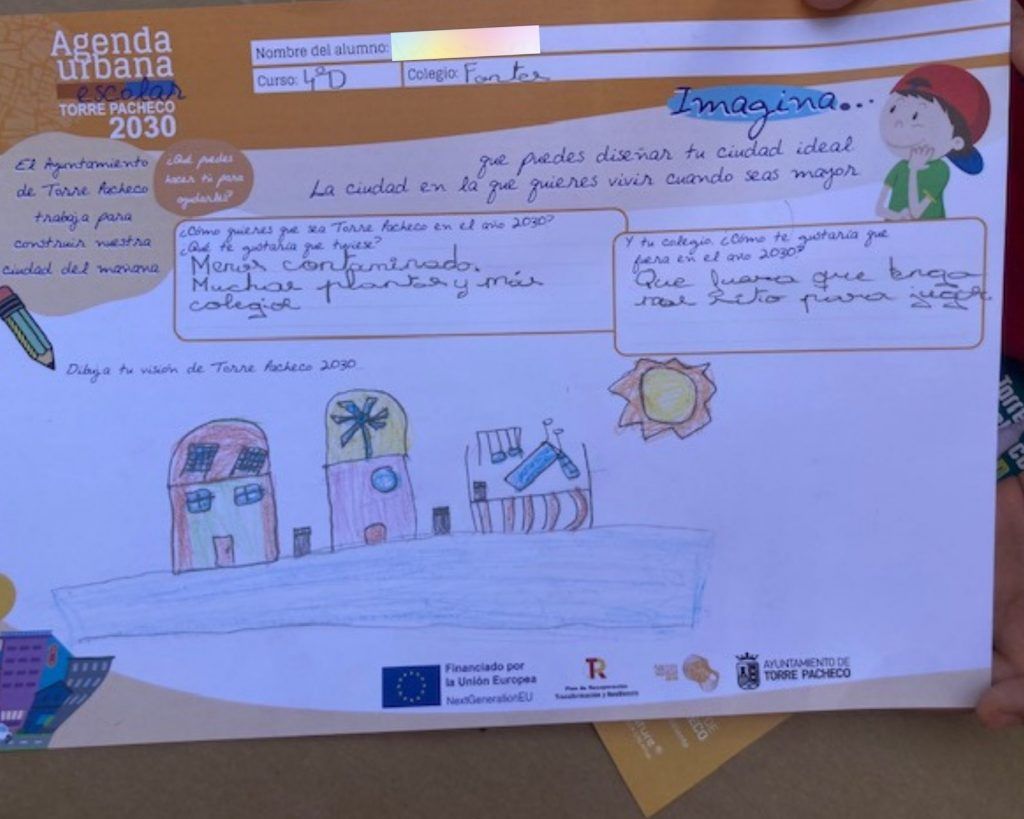 Agenda
urbana
escolar
TORRE PACHECO
2030
Nombre del alumno:
Curso: 4ºD
Colegio: Fontes
Imagina...
que puedes diseñar tu ciudad ideal
La ciudad en la que quieres vivir cuando seas mayor
El Ayuntamiento
de Torre Pacheco
trabaja para
construir nuestra
ciudad del mañana
¿Qué puedes
hacer tú para
ayudarles?
¿Cómo quieres que sea Torre Pacheco en el año 2030?
¿Qué te gustaría que tuviese?
Menos contaminado.
Muchas plantas y más
colegios
Y tu colegio ¿Cómo te gustaría que
fuera en el año 2030?
Que fuera que tenga
mas sitio para jugar.
Dibuja tu visión de Torre Pacheco 2030
Financiado por
la Unión Europea
NextGenerationEU
Plan de Recuperación,
Transformación y Resiliencia
AYUNTAMIENTO DE
TORRE PACHECO